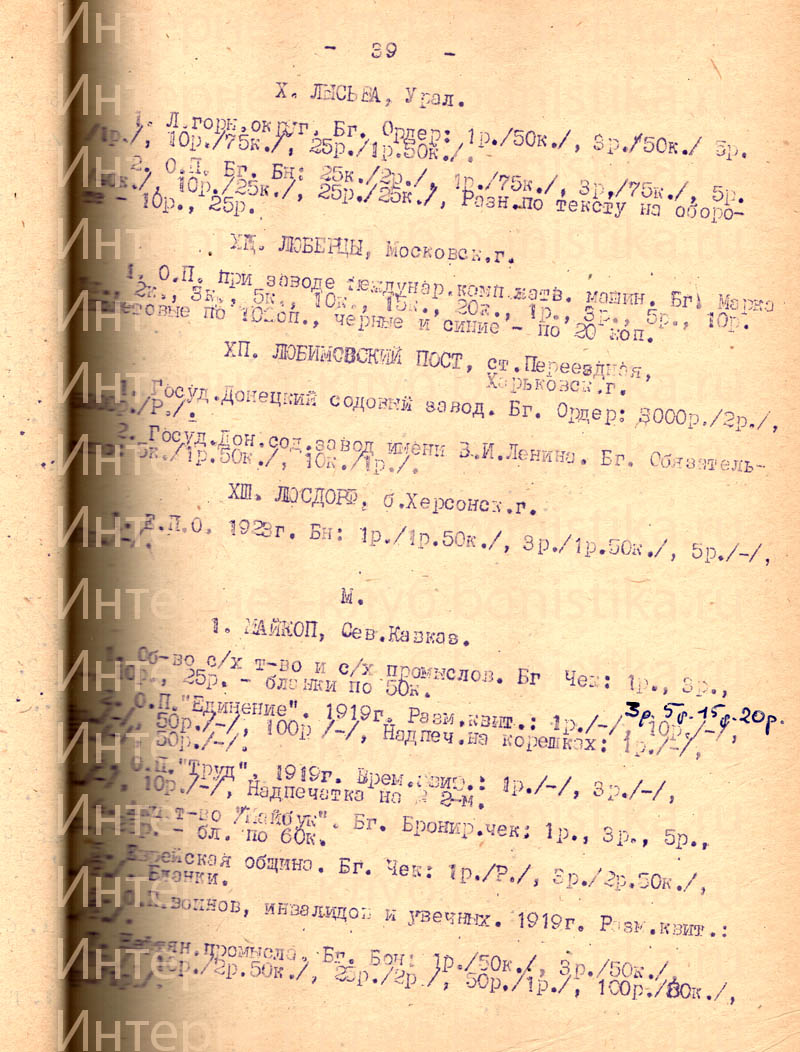 - 39 -
X. ЛЫСЬВА, Урал.
1. Л.горн.округ. Бг. Ордер: 1р./50к./, 3р./50к./ 5р.
/1р./, 10р./75к./, 25р./1р.50к./.
2. О.П. Бг. Бн: 25к./2р./, 1р./75к./, 3р./75к./, 5р.
/50к./, 10р./25к./, 25р./25к./, Разн.по тексту на оборо-
- 10р., 25р.
XI. ЛЮБЕРЦЫ, Московск.г.
1. О.П. при заводе Междунар.комп.жатв. машин. Бг. Марка
2к., 3к., 5к., 10к., 15к., 20к., 1р., 3р., 5р., 10р.
по 10коп., черные и синие - по 20 коп.
ХП. ЛЮБИМОВСКИЙ ПОСТ, ст.Переездная,
Харьковск.г.
1. Госуд.Донецкий содовый завод. Бг. Ордер: 3000р./2р./,
/Р./.
2. Госуд.Дон.сод.завод имени В.И.Ленина. Бг. Обязатель-
5к./1р.50к./, 10к./1р./.
ХШ. ЛОСДОРФ, б.Херсонск.г.
1. Е.П.О. 1923г. Бн: 1р./1р.50к./, 3р./1р.50к./, 5р./-/,
М.
1. МАЙКОП, Сев.Кавказ.
1. Об-во с/х т-во и с/х промыслов. Бг Чек: 1р., 3р.,
10р., 25р. - бланки по 50к.
2. О.П."Единение". 1919г. Разм.квит.: 1р./-/, 3р. 5р. 15р. 20р. 10р./-/,
50р./-/, 100р /-/, Надпеч.на корешках: 1р./-/,
50р./-/.
О.П."Труд". 1919г. Врем.квит.: 1р./-/, 3р./-/,
10р./-/, Надпечатка на 2-м.
т-во "Майбук". Бг. Бронир.чек: 1р., 3р., 5р.,
- бл. по 60к.
Еврейская община. Бг. Чек: 1р./Р./, 3р./2р.50к./,
- Бланки.
О.П.воинов, инвалидов и увечных. 1919г. Разм.квит.:
Нефтян.промысла. Бг. Бон: 1р./50к./, 3р./50к./,
10р./2р.50к./, 25р./2р./, 50р./1р./, 100р./80к./,